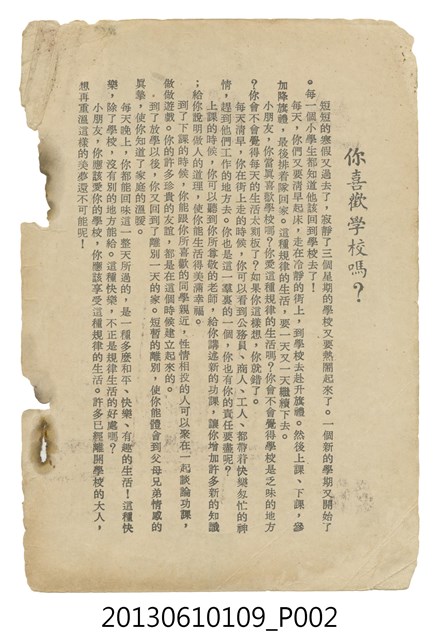 你喜歡學校嗎？
短短的寒假又過去了，寂靜了三個星期的學校又要熱鬧起來了。一個新的學期又開始了
。每一個小學生都知道他該回到學校去了！
每天，你們又要清早起床，走在冷靜的街上，到學校去赴升旗禮。然後上課、下課，參
加降旗禮，最後排着隊回家。這種規律的生活，要一天又一天繼續下去。
小朋友，你當眞喜歡學校嗎？你愛這種規律的生活嗎？你會不會覺得學校是乏味的地方
？你會不會覺得每天的生活太刻板了？如果你這樣想，你就錯了。
每天清早，你在街上走的時候，你可以看到公務員、商人、工人、都帶着快樂匆忙的神
情，趕到他們工作的地方去。你也是這一羣裏的一個，你也有你的責任要盡呢？
上課的時候，你可以聽到你所尊敬的老師，給你講述新的功課，讓你增加許多新的知識
；給你說明做人的道理，使你能生活得美滿幸福。
到了下課的時候，你能跟你所喜歡的同學親近，性情相投的人可以聚在一起談論功課，
做做遊戲。你的許多珍貴的友誼，都是在這個時候建立起來的。
到了放學以後，你又回到了離別一天的家。短暫的離別，使你能體會到父母兄弟情感的
眞摯，了使你知道了家庭的溫暖。
每天晚上，你都能回味這一整天所過的，是一種多麼和平、快樂、有趣的生活！這種快
樂，除了學校，沒有別的地方能給。這種快樂，不正是規律生活的好處嗎？
小朋友，你應該愛你的學校，你應該享受這種規律的生活。許多已經離開學校的大人，
想再重溫這樣的美夢還不可能呢！
20130610109_P002